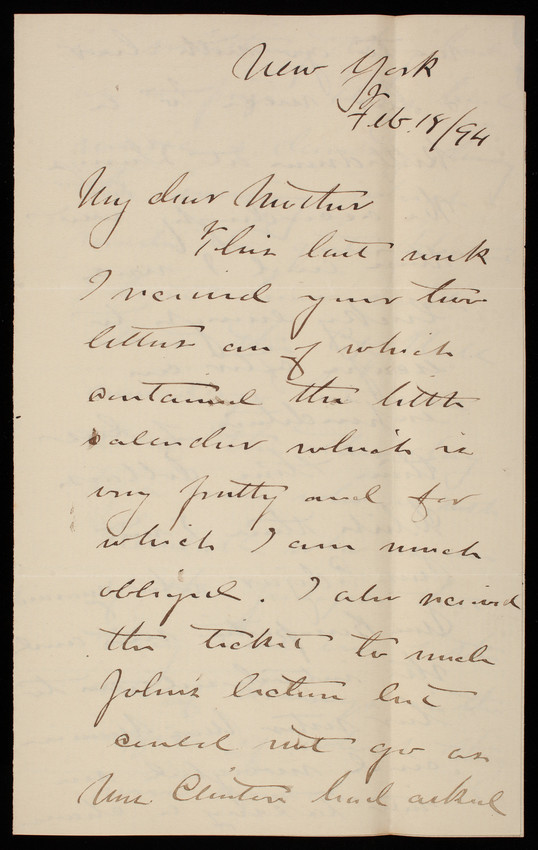 New York
Feb. 18/94
My dear Mother
This last week
I received your two
letters one of which
contained the little
calendar which is
very pretty and for
which I am much
obliged. I also received
the ticket to
John's lecture but
could not go as
Mrs. Clinton had asked